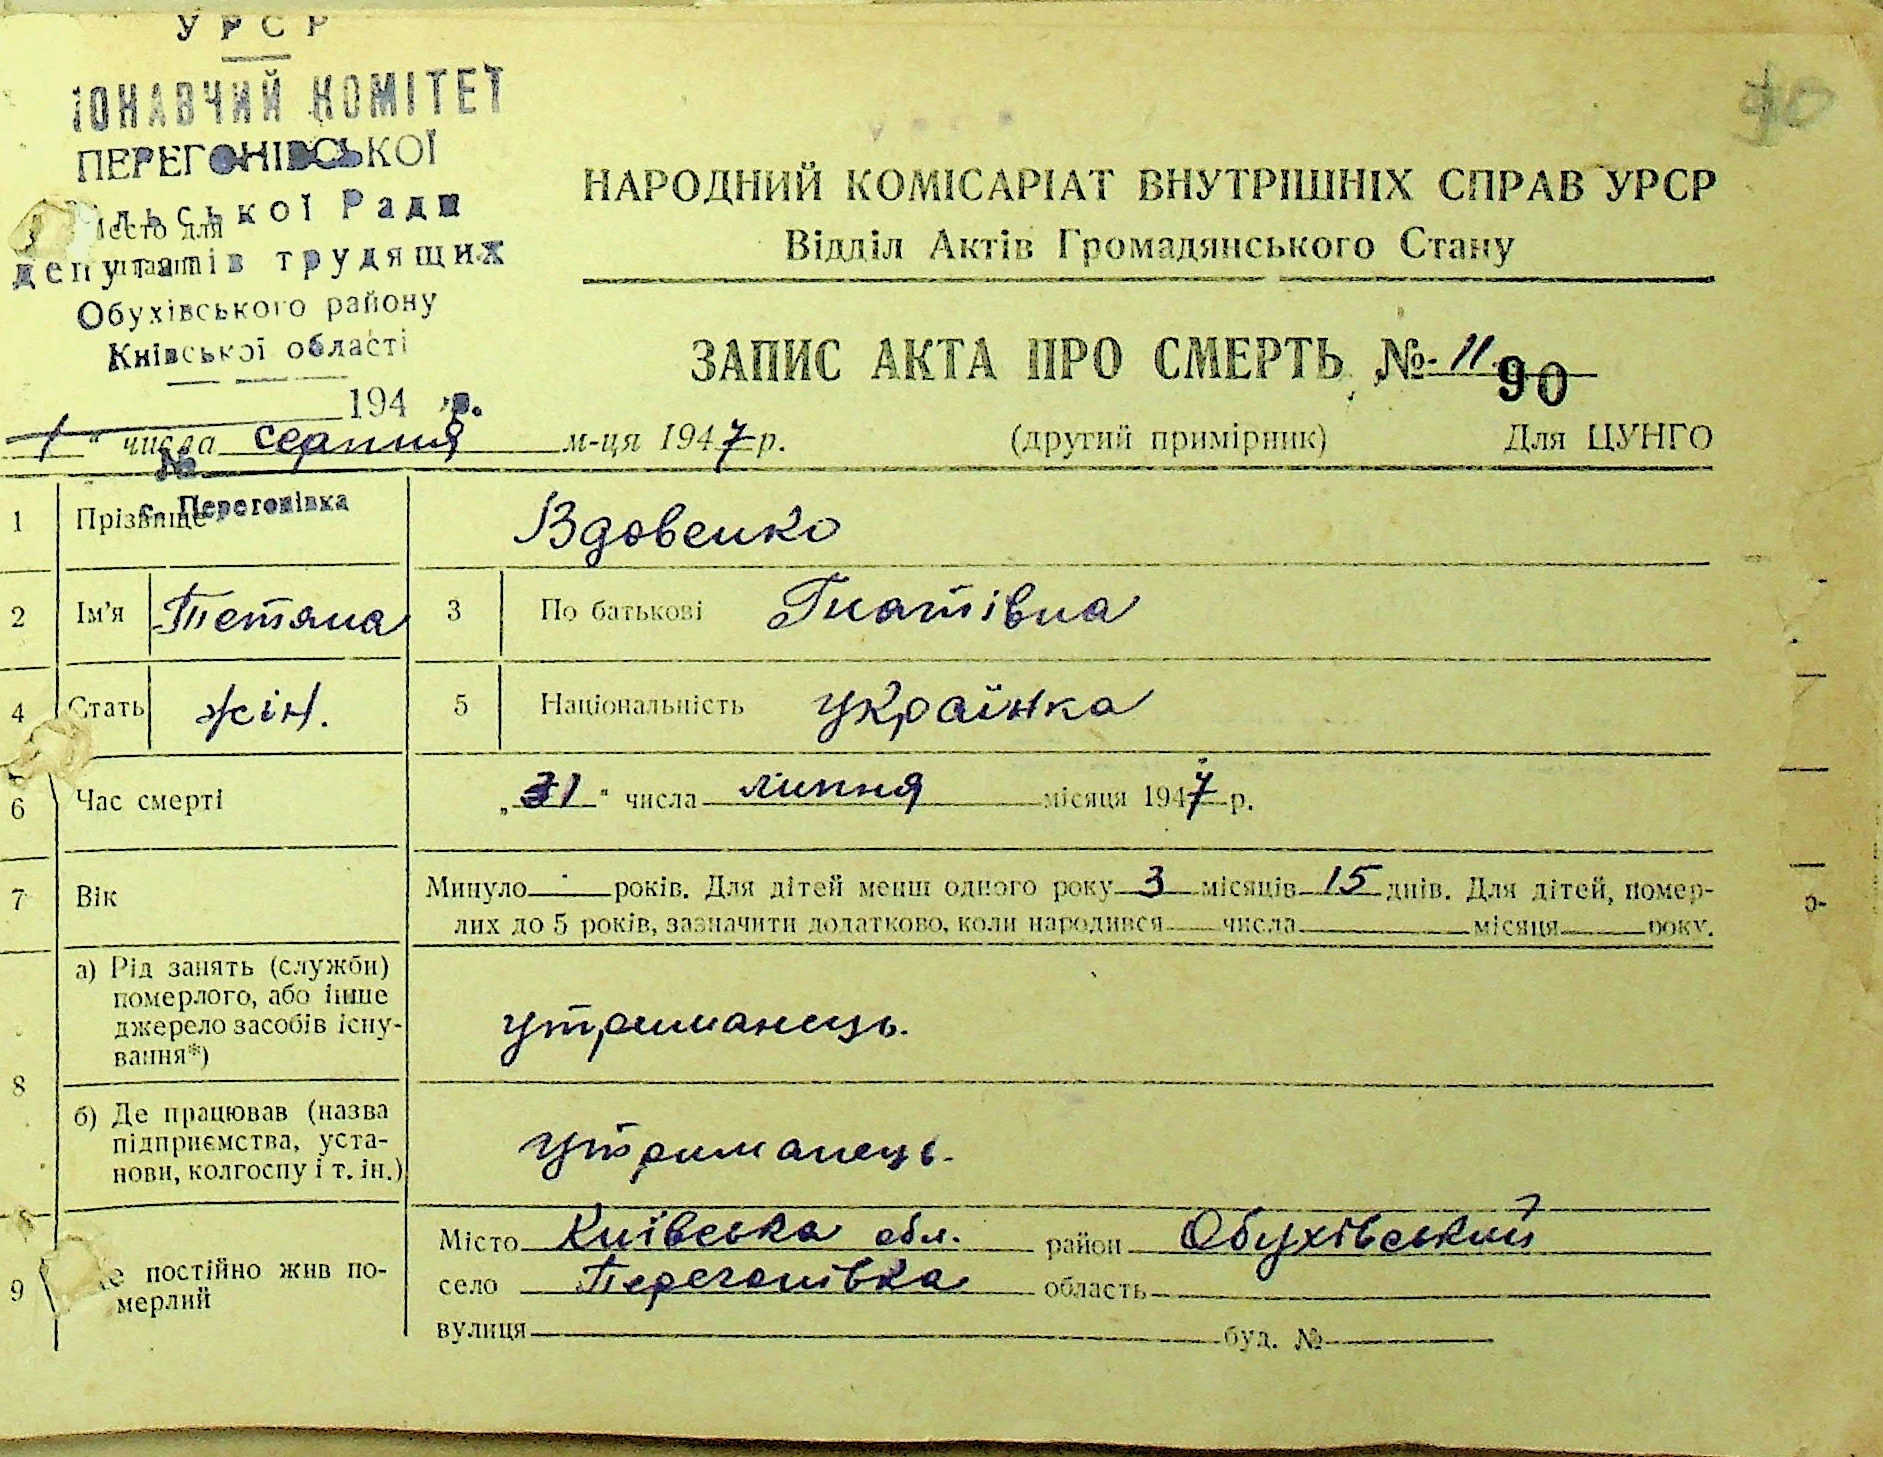 УРСР
КОМІТЕТ
ПЕРЕГОНІВСЬКОЇ
Ради
Місто для
депутатів трудящих
Обухівського району
Київської області
194 р.
№
с. Перегонівка
90
НАРОДНИЙ КОМІСАРІАТ ВНУТРІШНІХ СПРАВ УРСР
Відділ Актів Громадянського Стану
ЗАПИС АКТА ПРО СМЕРТЬ № 11
90
1 " числа серпня м-ця 1947 р. (другий примірник) Для ЦУНГО
1 Прізвище Вдовенко
2 Ім’я Тетяна 3 По батькові Гнатівна
4 Стать жін. 5 Національність українка
6 Час смерті „31" числа липня місяця 1947 р.
7 Вік Минуло - років. Для дітей менш одного року 3 місяців 15 днів. Для дітей, помер-
лих до 5 років, зазначити додатково, коли народився числа місяця року.
8 а) Рід занять (служби)
померлого, або інше
джерело засобів існу-
вання*)
утриманець.
б) Де працював (назва
підприємства, уста-
нови, колгоспу і т. ін.)
утриманець.
9 постійно жив по-
мерлий
Місто Київська обл. район Обухівський
село Перегонівка область
вулиця буд. №